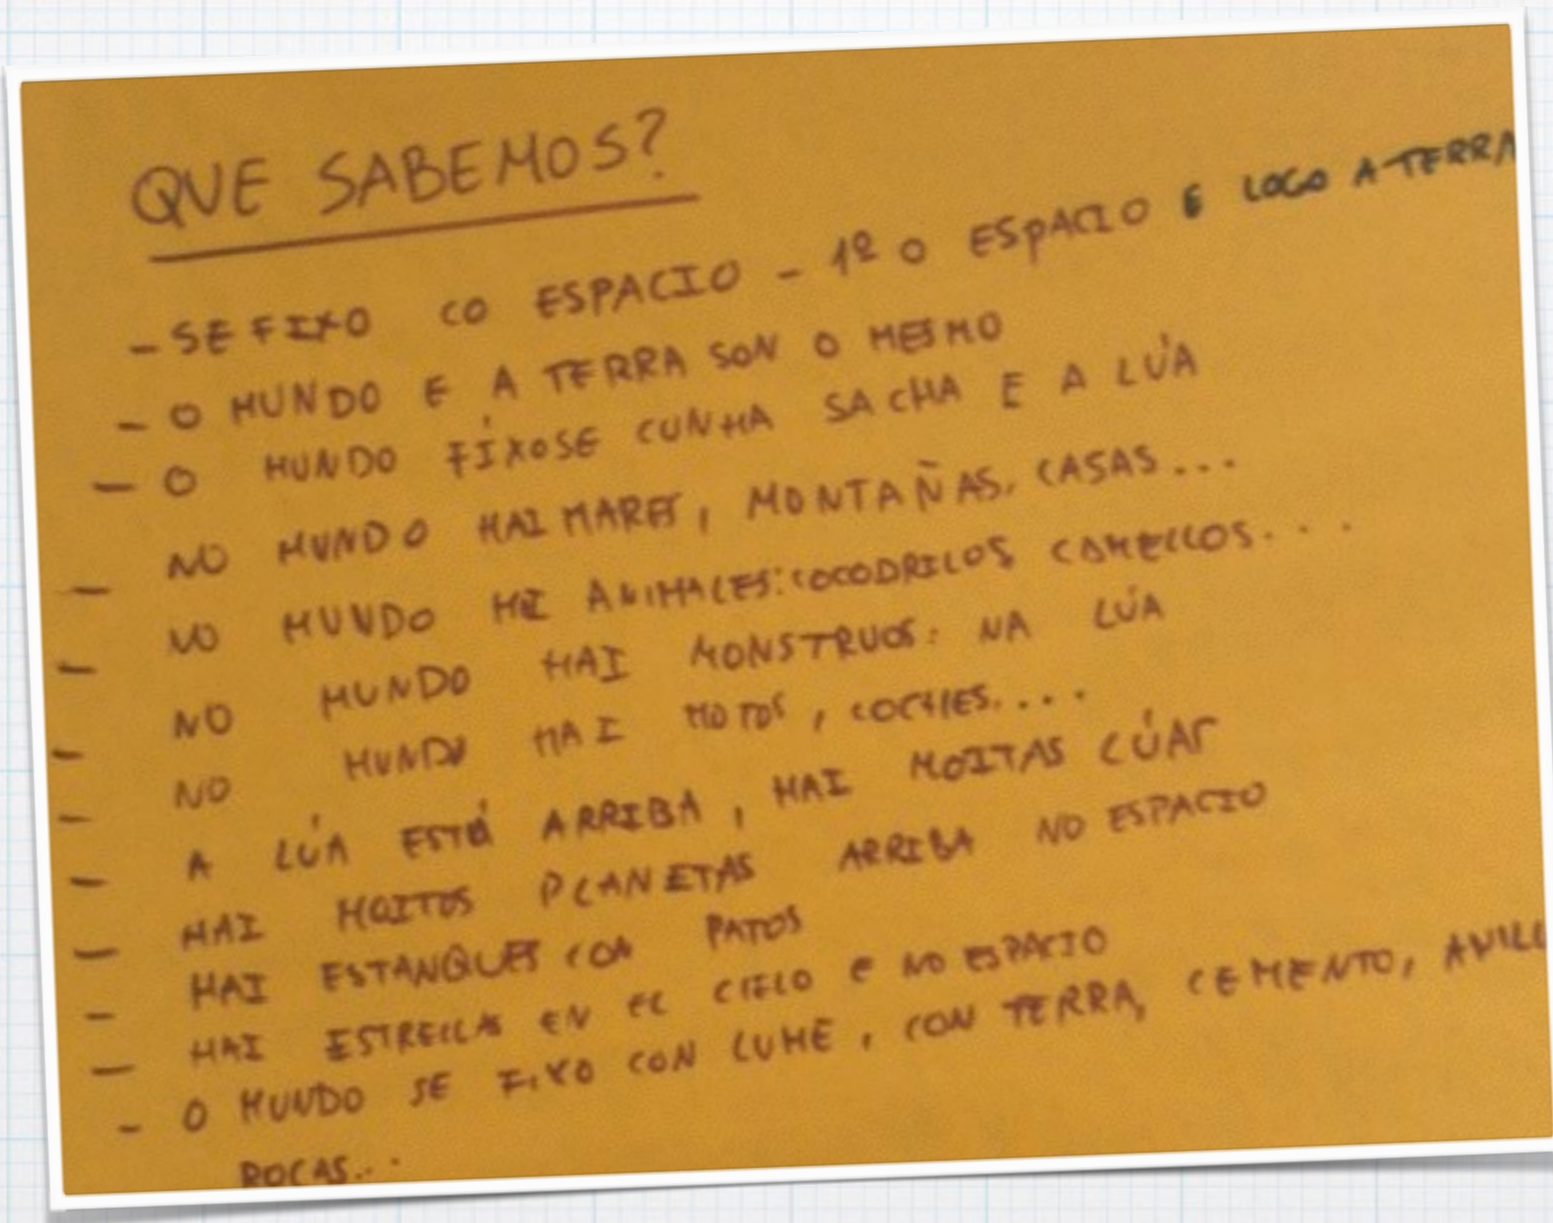 QUE SABEMOS?
- SE FIXO CO ESPACIO - 1º O ESPACIO E LOGO A TERRA
- O MUNDO E A TERRA SON O MESMO
- O MUNDO FÍXOSE CUNHA SACHA E A LÚA
- NO MUNDO HAI MARES, MONTAÑAS, CASAS...
- NO MUNDO HAI ANIMALES: COCODRILOS CAMELLOS...
- NO MUNDO HAI MONSTRUOS: NA LÚA
- NO MUNDO HAI MOTOS, COCHES....
- A LÚA ESTÁ ARRIBA, HAI MOITAS LÚAS
- HAI MOITOS PLANETAS ARRIBA NO ESPACIO
- HAI ESTANQUES CON PATOS
- HAI ESTRELLAS EN EL CIELO E NO ESPACIO
- O MUNDO SE FIXO CON LUME, CON TERRA, CEMENTO,
ROCAS...